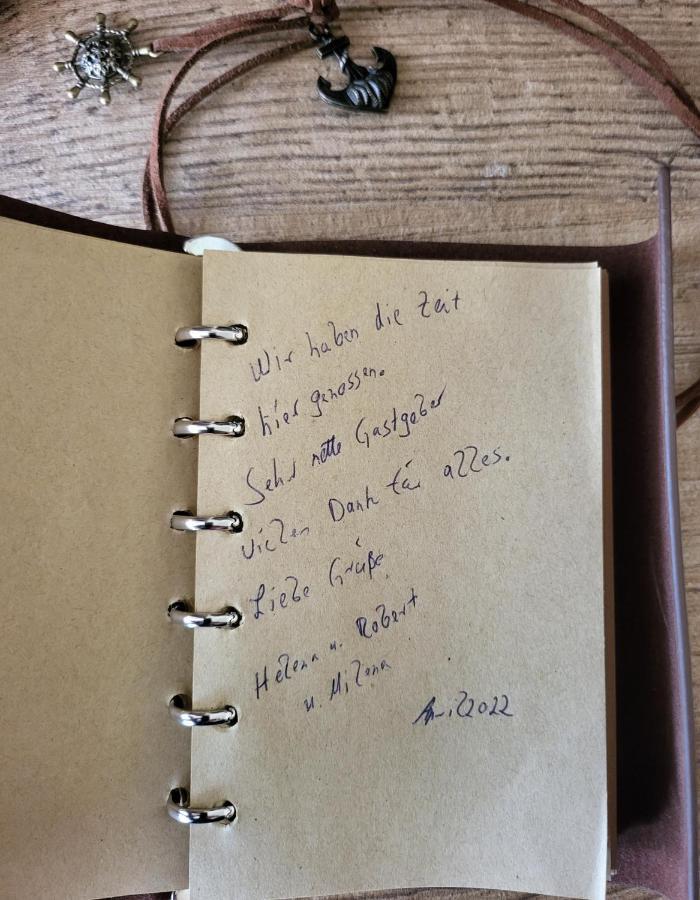 Wir haben die Zeit
hier genossen.
Sehr nette Gastgeber
vielen Dank für alles.
Liebe Grüße
Helena u. Robert
u. Milena
April 2022